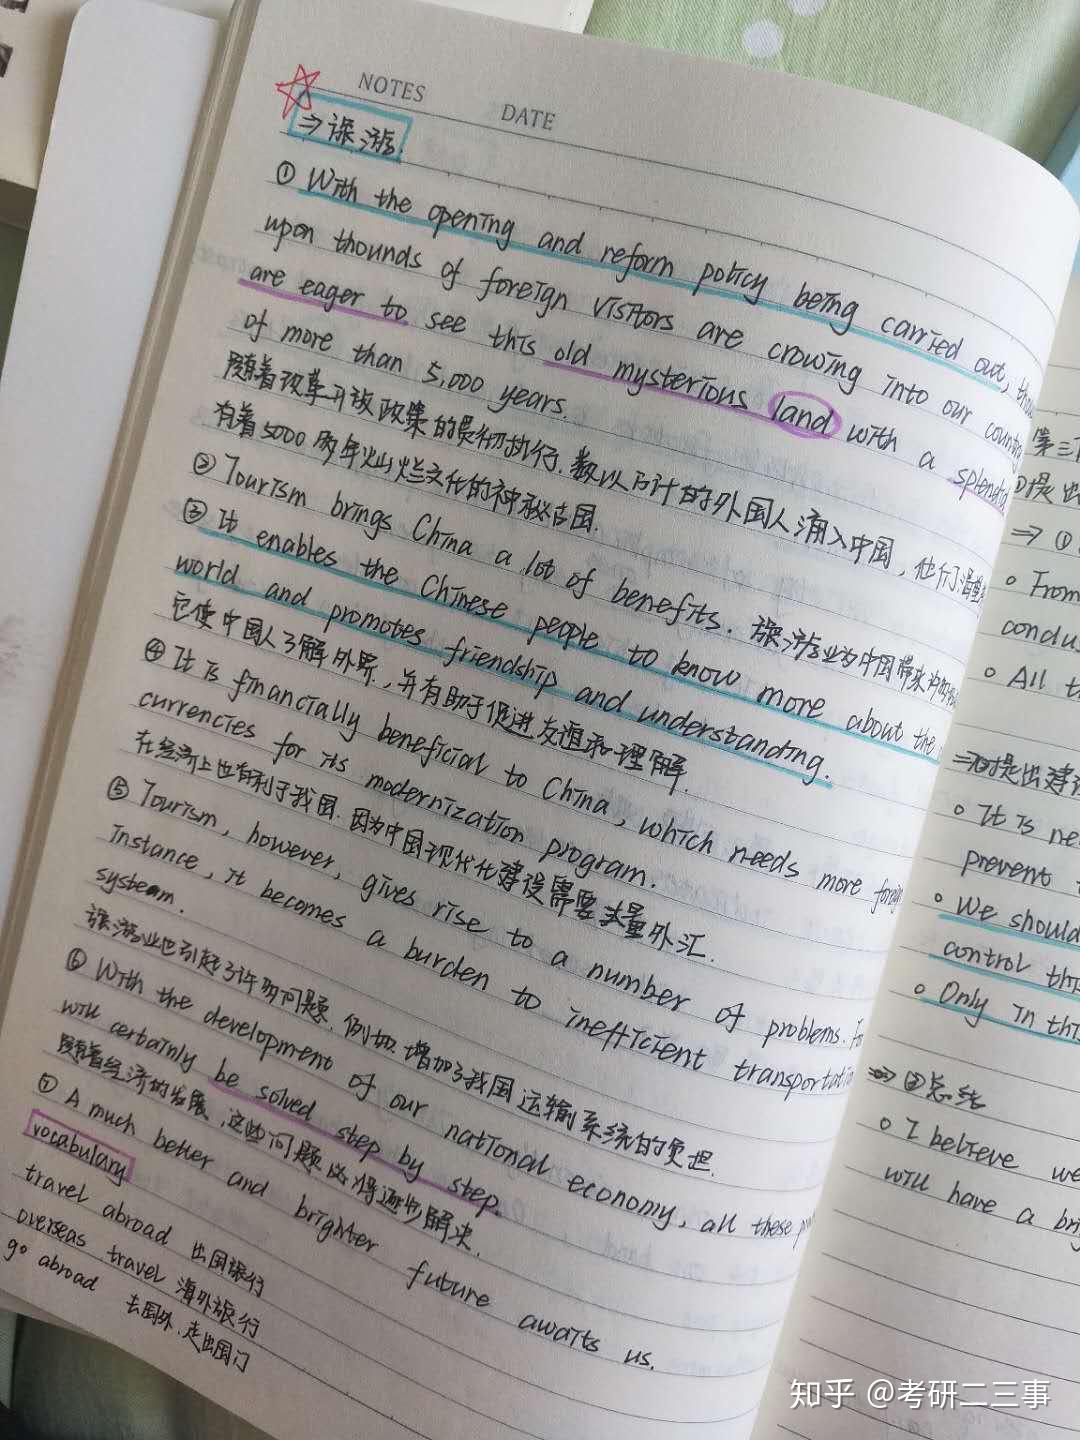 NOTES
DATE
⇒ 旅游.
① With the opening and reform policy being carried out,
upon thounds of foreign visitors are crowing into our country
are eager to see this old mysterious land with a splendid
of more than 5,000 years.
随着改革开放政策的贯彻执行.数以万计的外国人涌入中国,他们渴望
有着5000多年灿烂文化的神秘古国.
② Tourism brings China a lot of benefits. 旅游业为中国带来
③ It enables the Chinese people to know more about the
world and promotes friendship and understanding.
它使中国人了解外界,并有助于促进友谊和理解.
④ It is financially beneficial to China, which needs more
currencies for its modernization program.
在经济上也有利于我国.因为中国现代化建设需要大量外汇.
⑤ Tourism, however, gives rise to a number of problems.
instance, it becomes a burden to inefficient transportation
systeam.
旅游业也引起了许多问题.例如.增加了我国运输系统的负担.
⑥ With the development of our national economy, all these
will certainly be solved step by step.
随着经济的发展.这些问题必将逐步解决.
⑦ A much better and brighter future awaits us.
vocabulary
travel abroad 出国旅行
overseas travel 海外旅行
go abroad 去国外.走出国门
第三
提出
⇒ ①
From
conclu
All th
It is ne
prevent
We should
control this
Only in this
总结
I believe we
will have a bri
知乎 @考研二三事